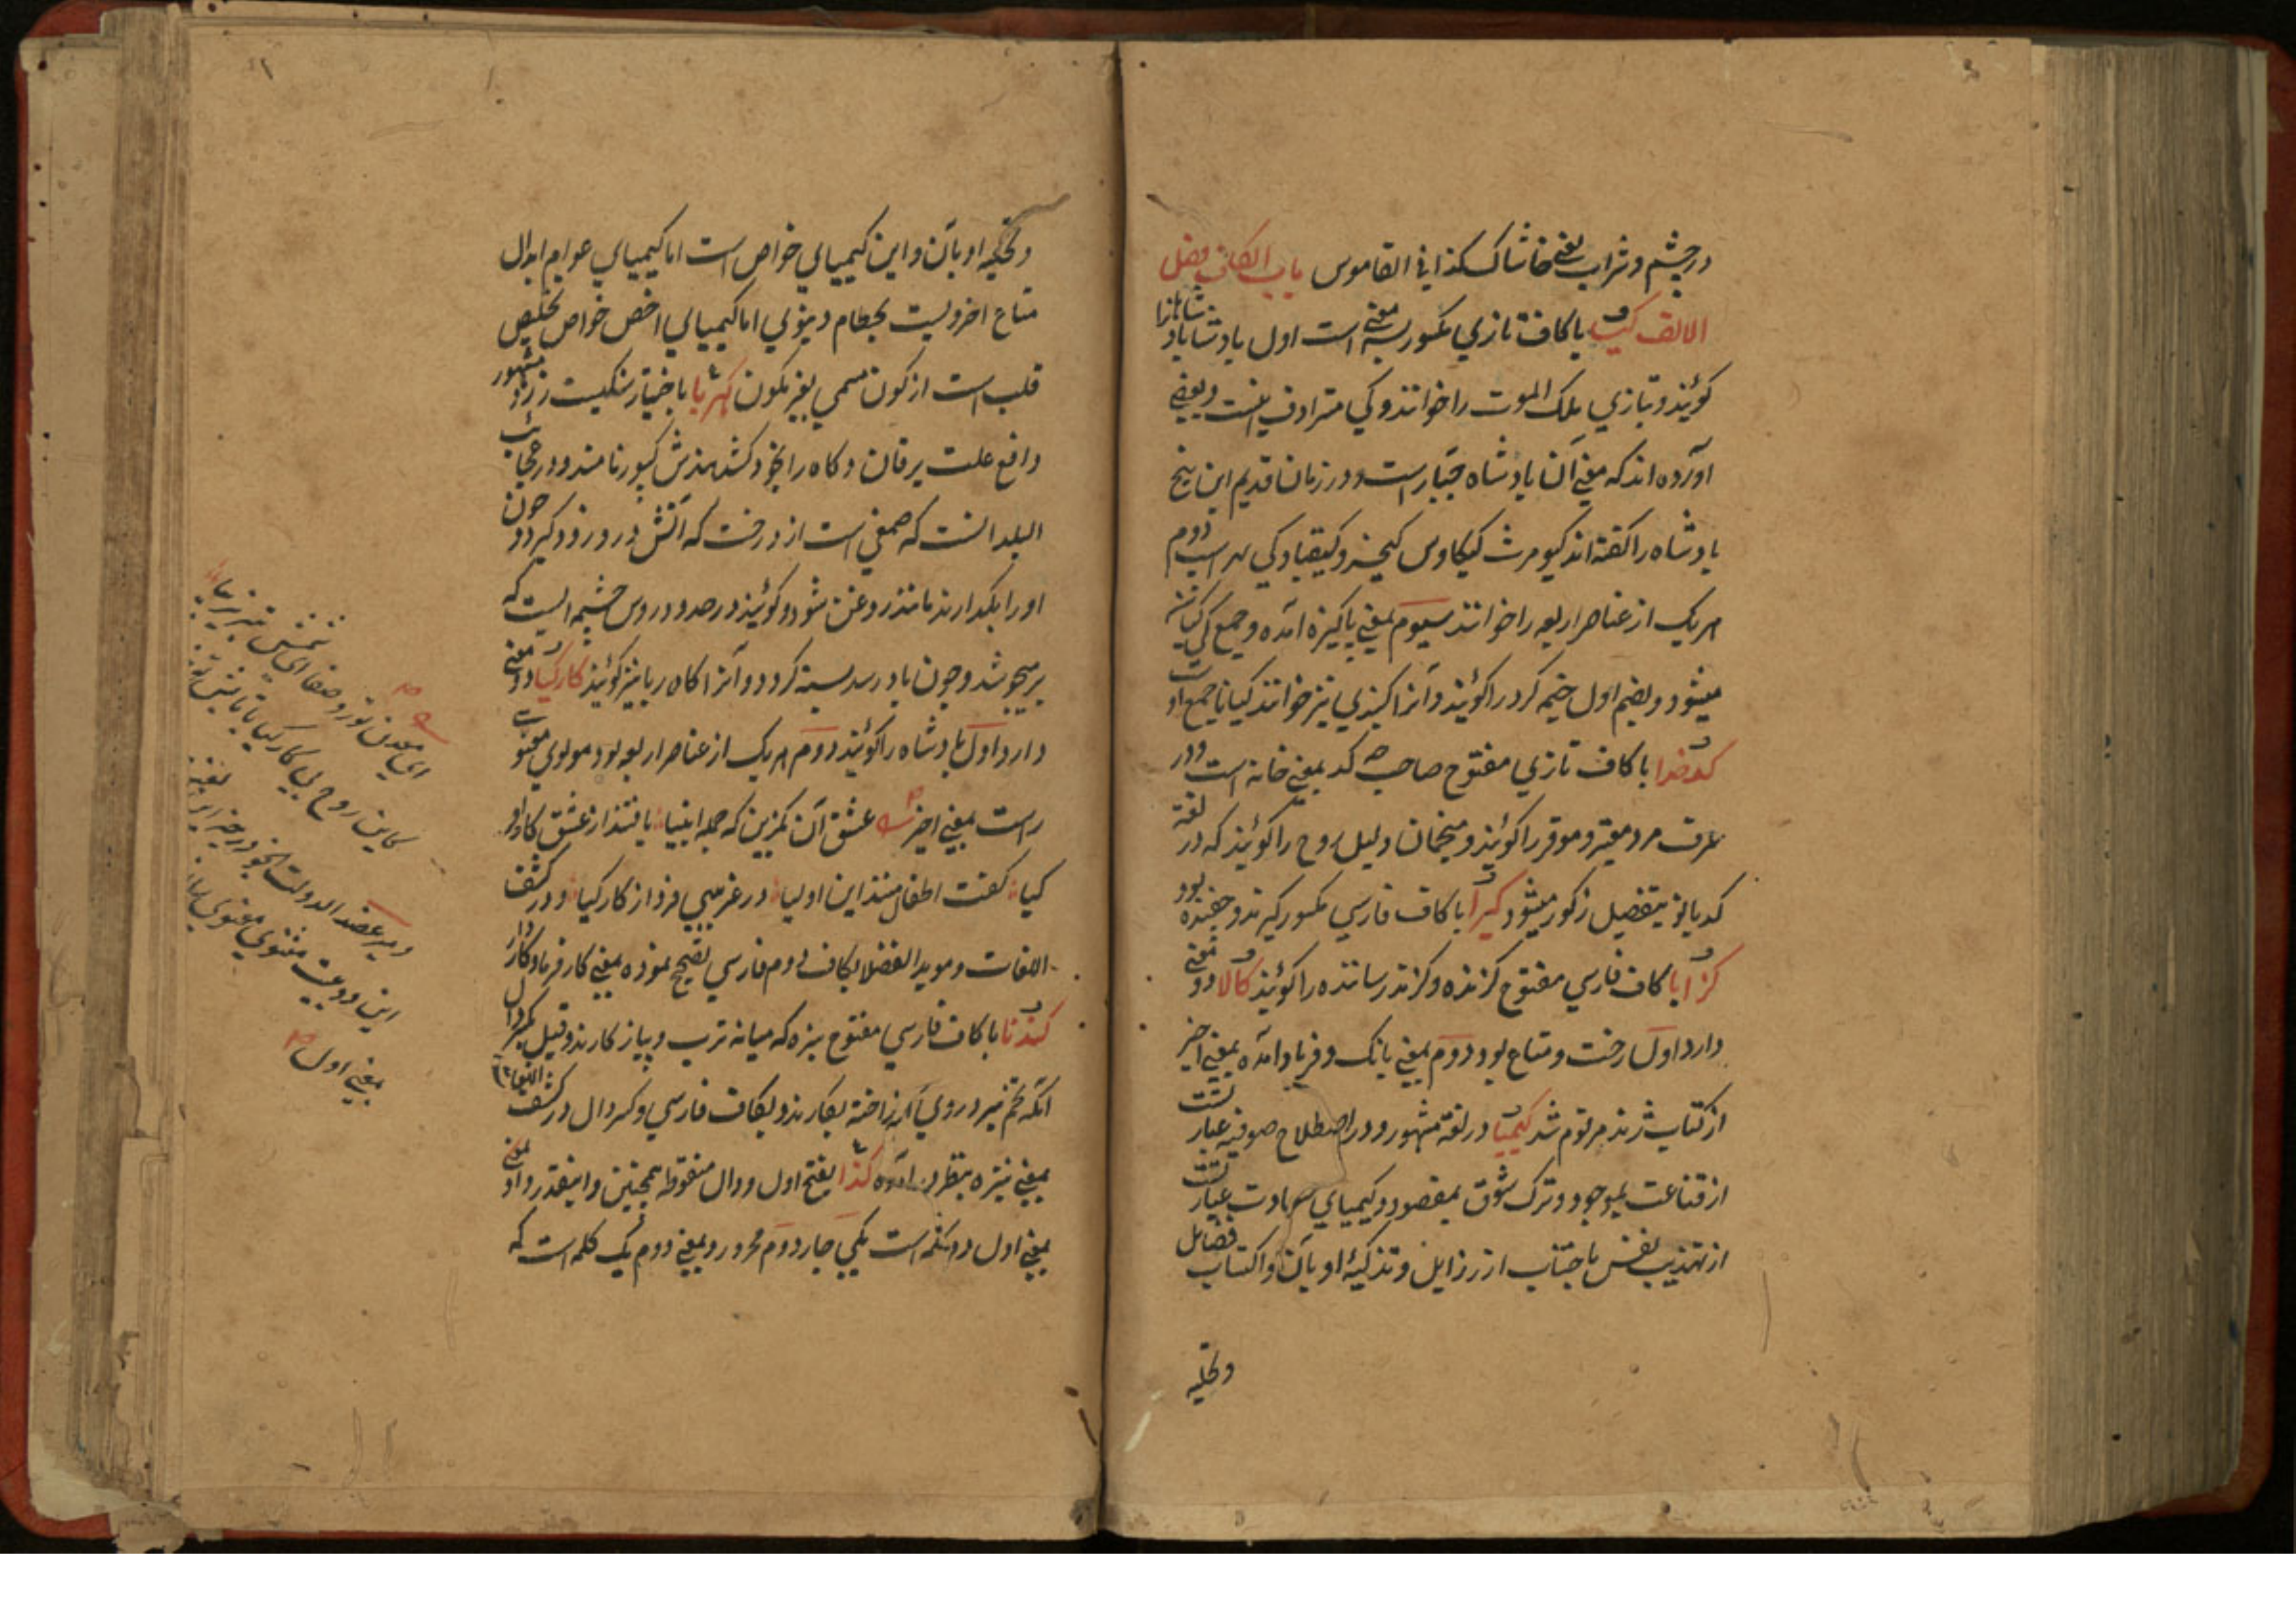 در چشم و شراب یعنی خاشاک کذا فی القاموس باب الکاف فصل
الالف کیا با کاف تازی مکسور بسه معنی است اول پادشاهانرا
گویند و بتازی ملک الموت را خوانند و کی مترادف است و بعضی
آورده اند که معنی آن پادشاه جبار است و در زمان قدیم این پنج
پادشاه را گفته اند کیومرث کیکاوس کیخسرو کیقباد کی لهراسب دوم
هر یک از عناصر اربعه را خوانند سیوم بمعنی پاکیزه آمده و جمع کی کیان نیز
میشود و بضم اول خیمه گرد را گویند و آنرا نیز خوانند کیانا جمع اوست
کدخدا با کاف تازی مفتوح صاحب کد بمعنی خانه است و در
عرف مرد معتبر و موقر را گویند و منجمان دلیل روح را گویند که در لغة
کدبانو بتفصیل مذکور میشود گیرا با کاف فارسی مکسور گیرنده و بود
گزا با کاف فارسی مفتوح گزنده و گزند رساننده را گویند کالا دو معنی
دارد اول رخت و متاع بود دوم بمعنی بانگ و فریاد آمده بمعنی اخیر
از کتاب ژند مرقوم شد کیمیا در لغة مشهور و در اصطلاح صوفیه عبارتست
از قناعت بموجود و ترک شوق بمقصود و کیمیای سعادت عبارتست
از تهذیب نفس باجتناب از رذایل و تزکیهٔ او بآن و اکتساب فضایل
وتحلیه
وتحلیه او بآن و این کیمیای خواص است اما کیمیای عوام ابدال
متاع اخرویست بحطام دنیوی اما کیمیای اخص خواص تخلیص
قلب است از کون مسمی بغیر مکون کهربا سنگیست زرد مشهور
دافع علت یرقان و کاه را بخود کشد هندش کپور نامند و در عجائب
البلدانست که صمغی است از درخت که آتش در و زود گیرد و چون
او را بگدازند مانند روغن شود و گویند در حدود روس چشمه ایست که
بر میجوشد و چون باد رسد بسته گردد و آنرا کاه ربا نیز گویند کارکیا دو معنی
دارد اول پادشاه را گویند دوم هر یک از عناصر اربعه بود مولوی معنوی
راست بمعنی اخیر عشق آن بگزین که جمله انبیا یافتند از عشق کار و
کیا گفت اطفال منند این اولیا در غریبی فرد از کارکیا و در کشف
اللغات و موید الفضلا بکاف دوم فارسی تصحیح نموده بمعنی کارفرما و کاردار
گندنا با کاف فارسی مفتوح سبزه که میانه ترب و پیاز کارند و قیل
آنکه تخم نیز در روی بکارند و بکاف فارسی و کسر دال در کشف اللغات
بمعنی نیزه بنظر آمده کذا بفتح اول و دال منقوطه همچنین و اینقدر و او بمعنی
بمعنی اول دو کلمه است یکی جار دوم مجرور و بمعنی دوم یک کلمه است که
ای معدن نور و صفا ای شمس تبریز
کاین روح بی کارکیا
و میر عضد الدوله
این دو بیت مثنوی معنوی
بمعنی اول